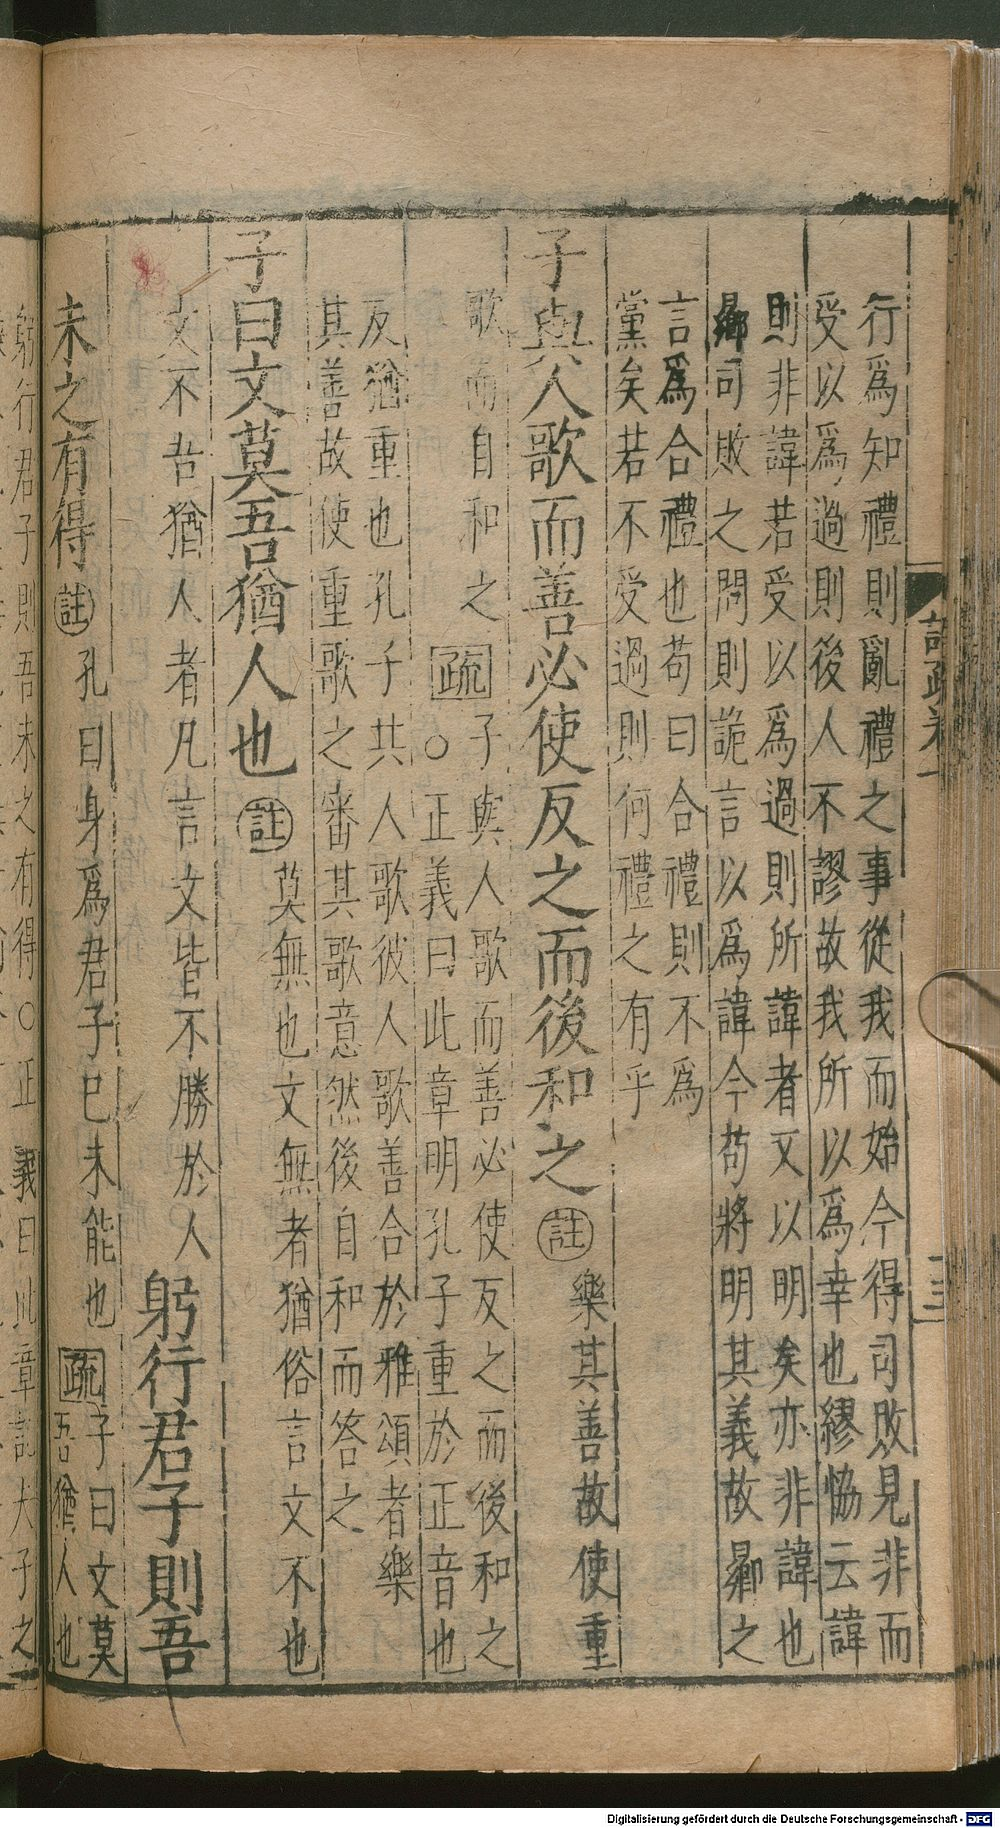 註疏卷
行爲知禮則亂禮之事從我而始今得司敗見非而
受以爲過則後人不謬故我所以爲幸也繆恊云諱
則非諱若受以爲過則所諱者又以明矣亦非諱也
曏司敗之問則詭言以爲諱今苟將明其義故曏之
言爲合禮也苟曰合禮則不爲
黨矣若不受過則何禮之有乎
子與人歌而善必使反之而後和之 註 樂其善故使重
歌而自和之 疏 子與人歌而善必使反之而後和之
○正義曰此章明孔子重於正音也
反猶重也孔子共人歌彼人歌善合於雅頌者樂
其善故使重歌之審其歌意然後自和而答之
子曰文莫吾猶人也 註 莫無也文無者猶俗言文不也
文不吾猶人者凡言文皆不勝於人 躬行君子則吾
未之有得 註 孔曰身爲君子已未能也 疏 子曰文莫
吾猶人也
躬行君子則吾未之有得○正義曰此章記夫子之
Digitalisierung gefördert durch die Deutsche Forschungsgemeinschaft - DFG